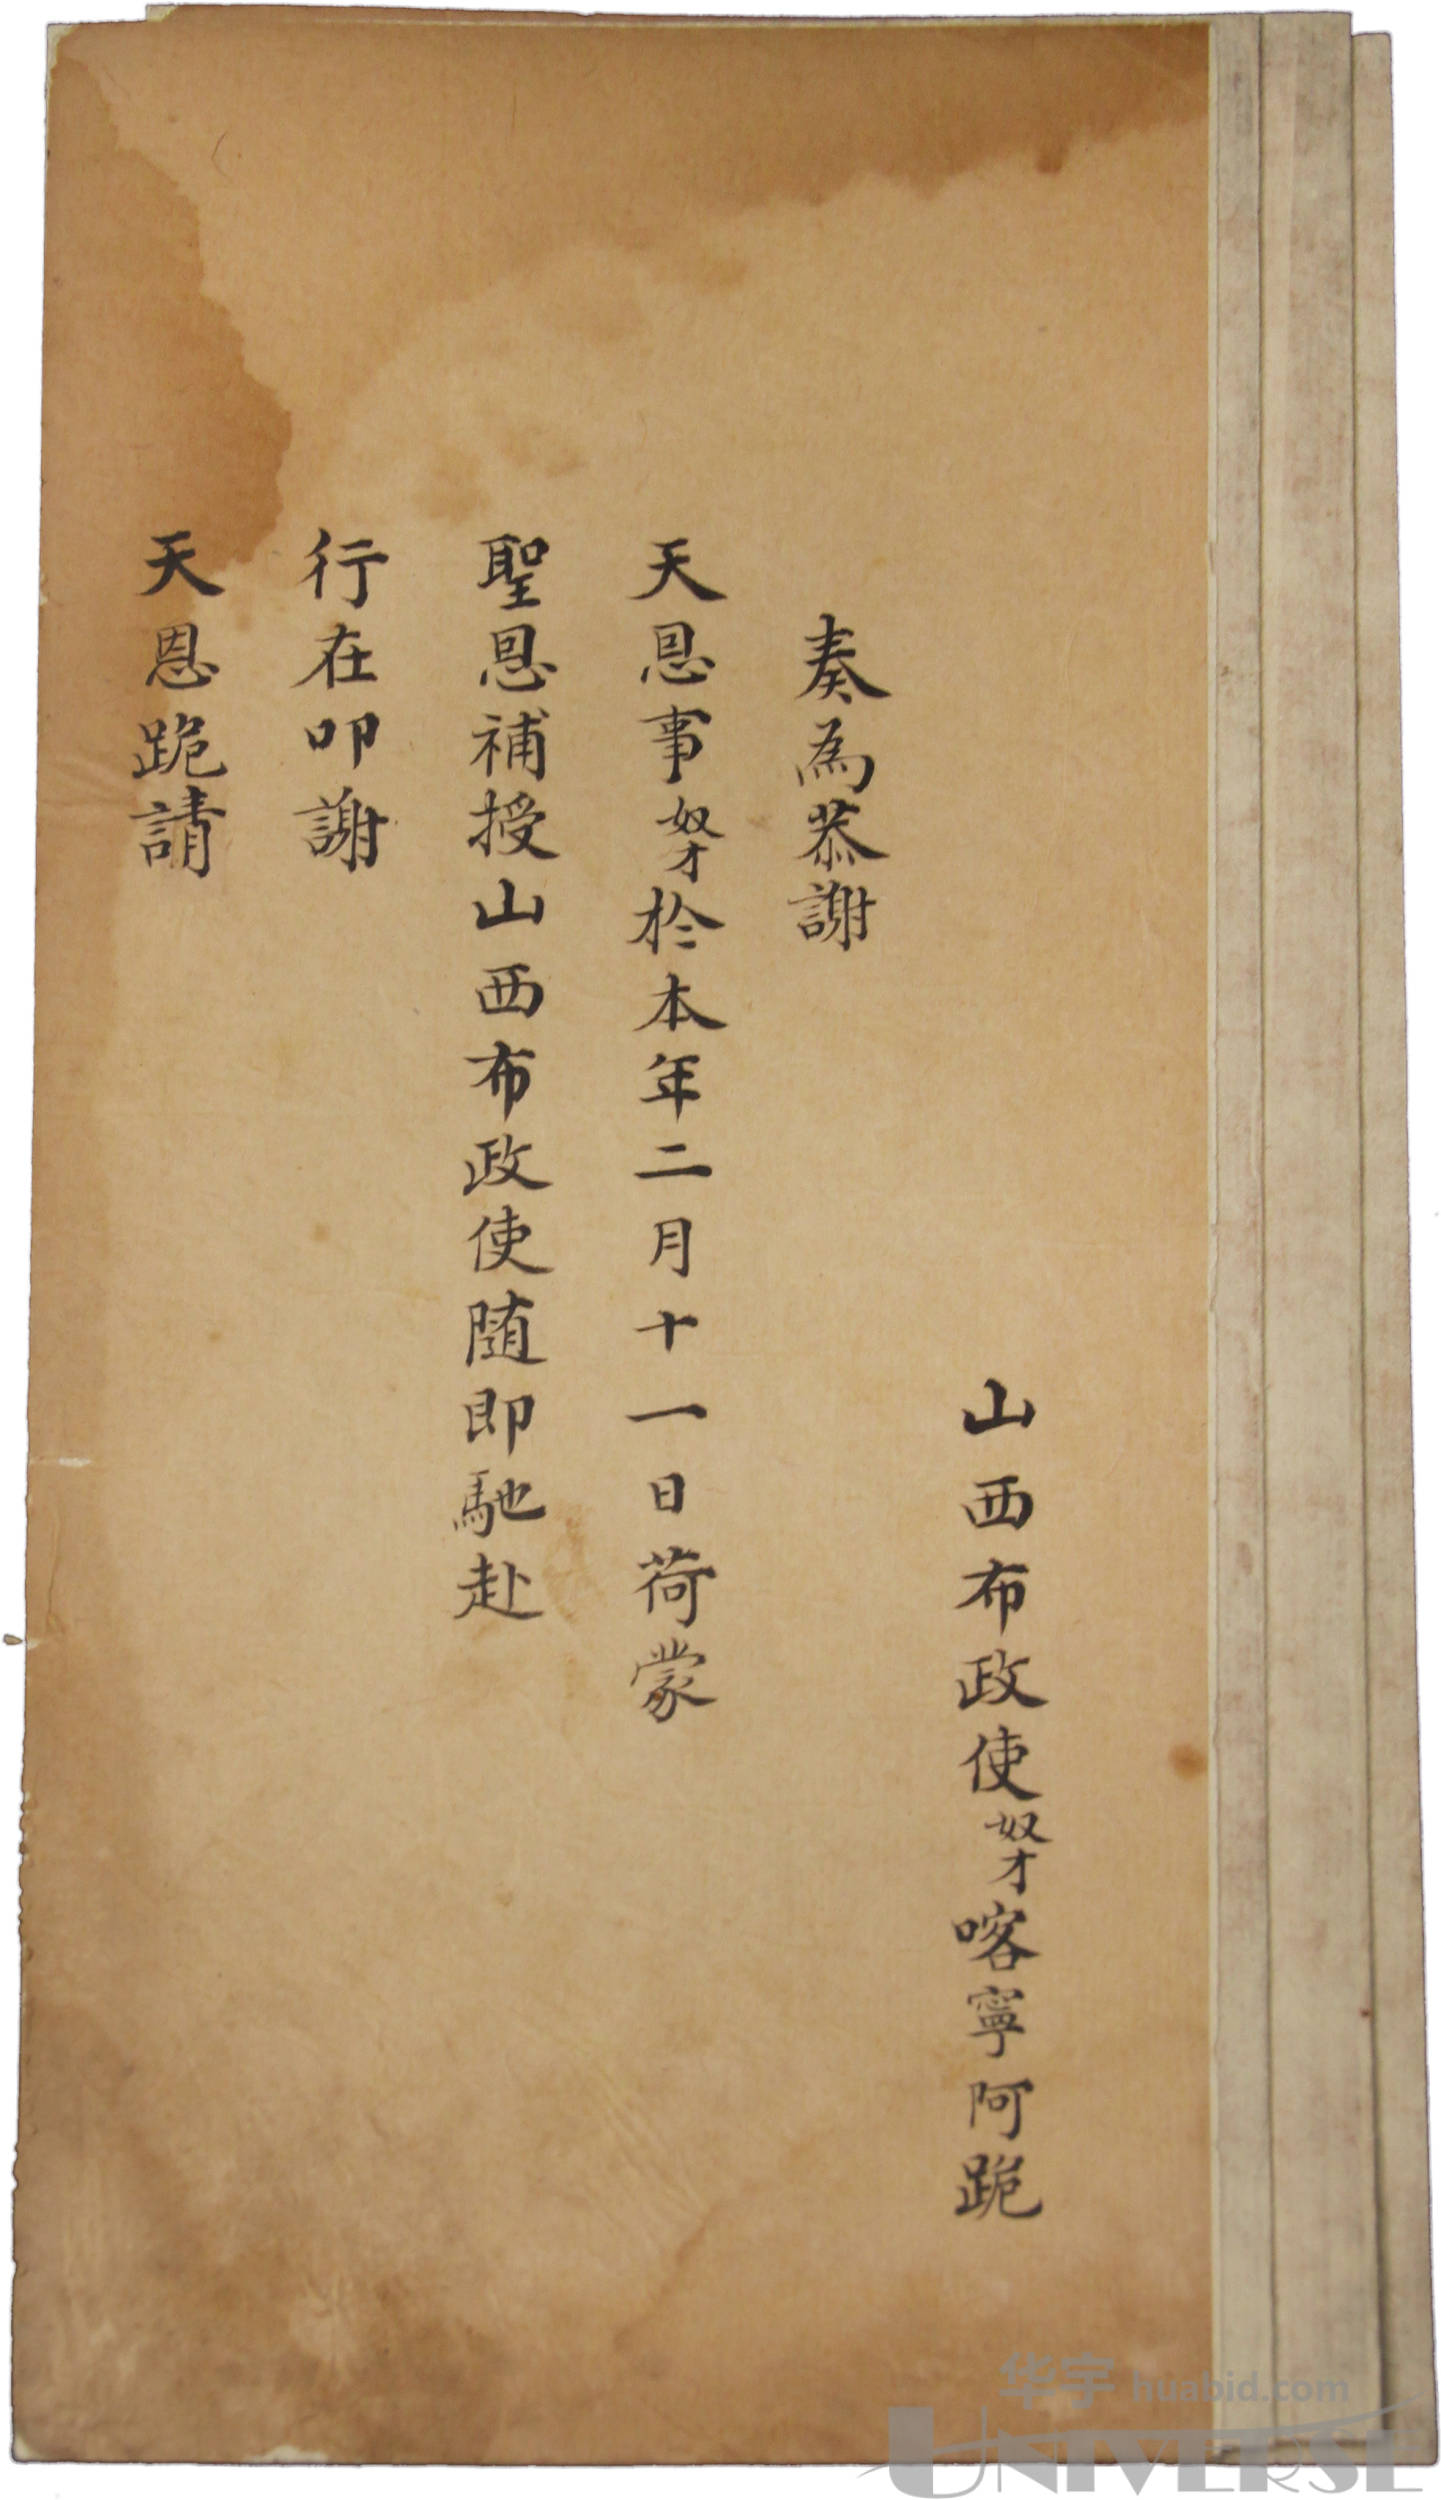 山西布政使奴才喀寧阿跪
奏為恭謝
天恩事奴才於本年二月十一日荷蒙
聖恩補授山西布政使隨即馳赴
行在叩謝
天恩跪請
华宇 huabid.com
UNIVERSE